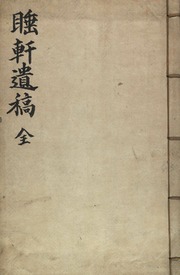 睡軒遺稿 全